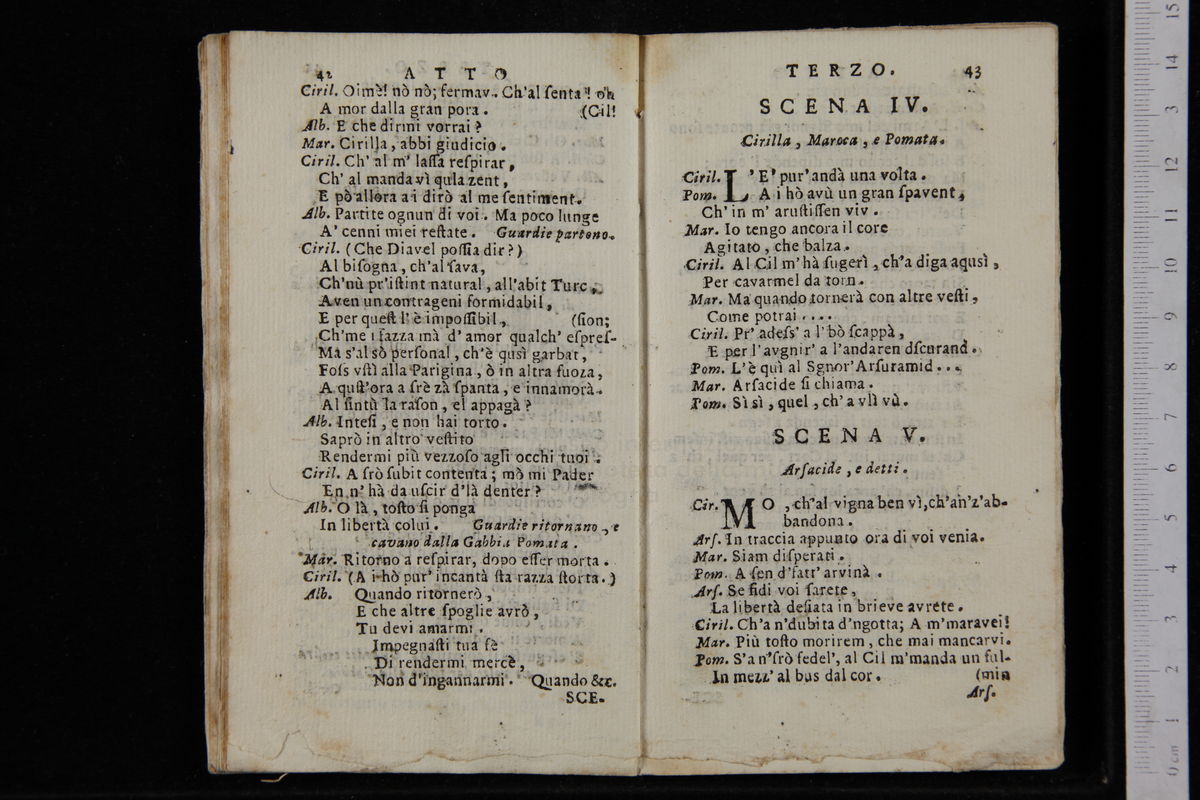 42 ATTO
Ciril. Oimè! nò nò; fermav.. Ch'al ſenta! oh
A mor dalla gran pora. (Cil!
Alb. E che dirmi vorrai?
Mar. Cirilla, abbi giudicio.
Ciril. Ch' al m' laſſa reſpirar,
Ch' al manda vì qula zent,
E pò allora a i dirò al me ſentiment.
Alb. Partite ognun di voi. Ma poco lunge
A' cenni miei reſtate. Guardie partono.
Ciril. (Che Diavel poſſia dir?)
Al biſogna, ch'al ſava,
Ch'nù pr'iſtint natural, all'abit Turc,
Aven un contrageni formidabil,
E per queſt l'è impoſſibil, (ſion;
Ch'me i fazza mà d' amor qualch' eſpreſ-
Ma s'al sò perſonal, ch'è qusì garbat,
Foſs vſtì alla Parigina, ò in altra fuoza,
A quſt'ora a ſrè zà ſpanta, e innamorà.
Al ſintù la raſon, el appagà?
Alb. Inteſi, e non hai torto.
Saprò in altro veſtito
Rendermi più vezzoſo agli occhi tuoi.
Ciril. A ſrò ſubit contenta; mò mi Pader
En n' hà da uſcir d'là denter?
Alb. O là, toſto ſi ponga
In libertà colui. Guardie ritornano, e
cavano dalla Gabbia Pomata.
Mar. Ritorno a reſpirar, dopo eſſer morta.
Ciril. (A i hò pur' incantà ſta razza ſtorta.)
Alb. Quando ritornerò,
E che altre ſpoglie avrò,
Tu devi amarmi.
Impegnaſti tua fè
Di rendermi mercè,
Non d'ingannarmi. Quando &c.
SCE-
TERZO. 43
SCENA IV.
Cirilla, Maroca, e Pomata.
Ciril. L'E' pur' andà una volta.
Pom. A i hò avù un gran ſpavent,
Ch' in m' aruſtiſſen viv.
Mar. Io tengo ancora il core
Agitato, che balza.
Ciril. Al Cil m'hà ſugerì, ch'a diga aqusì,
Per cavarmel da torn.
Mar. Ma quando tornerà con altre veſti,
Come potrai ....
Ciril. Pr' adeſs' a l'hò ſcappà,
E per l'avgnir' a l'andaren dſcurand.
Pom. L'è quì al Sgnor' Arſuramid...
Mar. Arſacide ſi chiama.
Pom. Sì sì, quel, ch'a vlì vù.
SCENA V.
Arſacide, e detti.
Cir. MO, ch'al vigna ben vì, ch'an'z'ab-
bandona.
Arſ. In traccia appunto ora di voi venia.
Mar. Siam diſperati.
Pom. A ſen d'fatt' arvinà.
Arſ. Se fidi voi ſarete,
La libertà deſiata in brieve avrete.
Ciril. Ch'a n'dubita d'ngotta; A m'maravei!
Mar. Più toſto morirem, che mai mancarvi.
Pom. S'a n'ſrò fedel', al Cil m'manda un ful-
In mezz' al bus dal cor. (min
Arſ.
0 cm 1 2 3 4 5 6 7 8 9 10 11 12 13 14 15